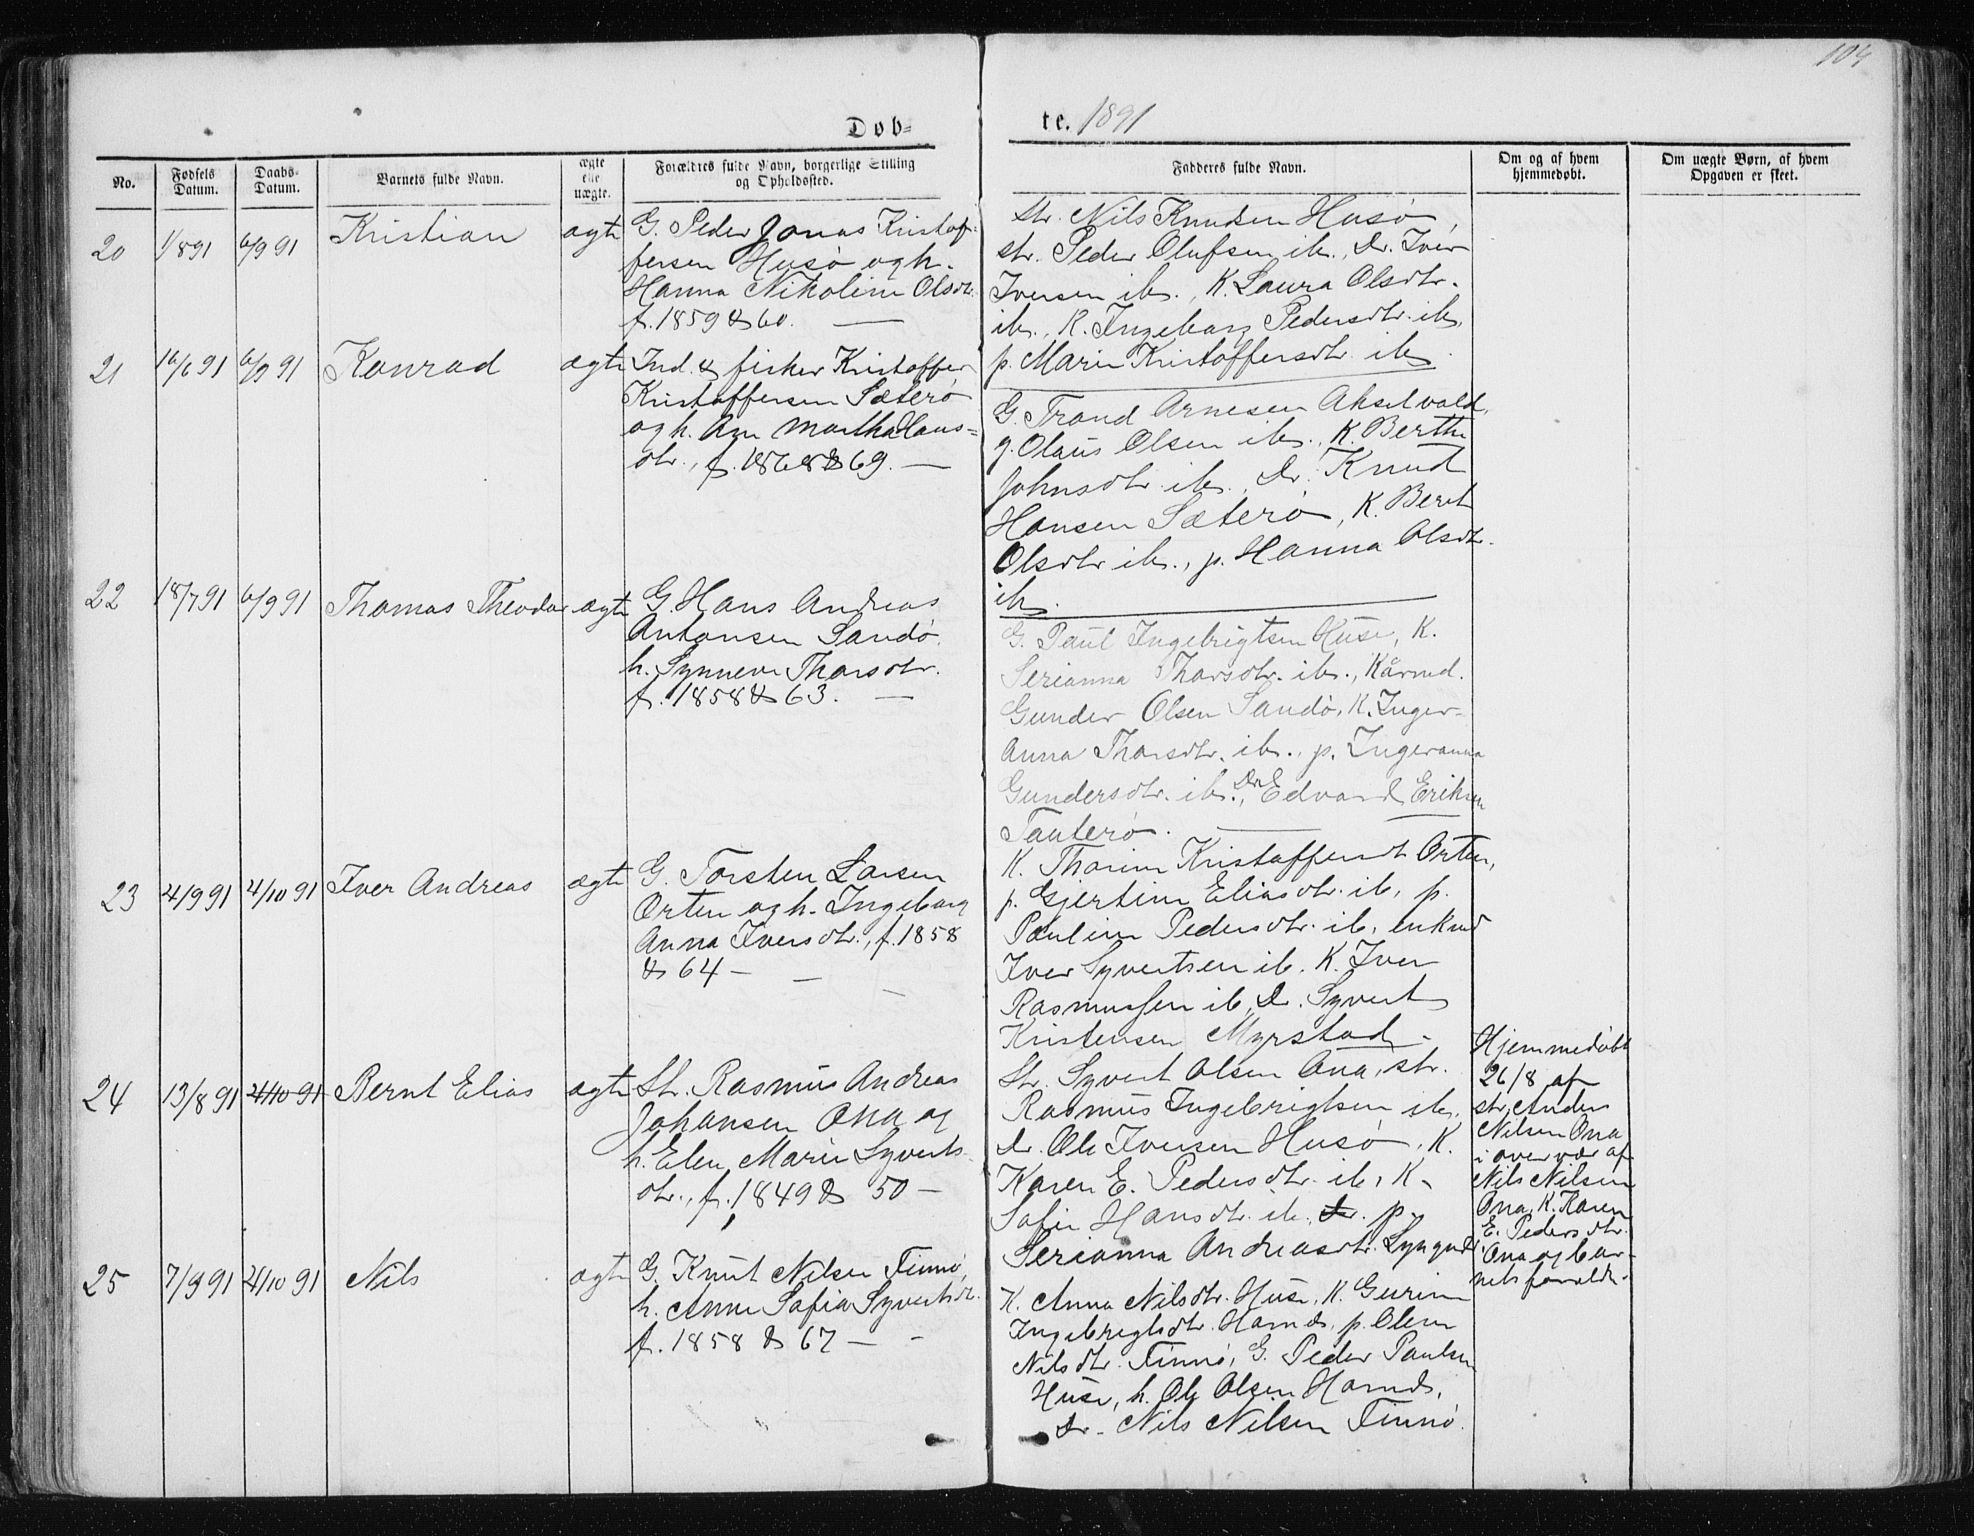 104
Døb-
te. 1891
No.
Fødsels Datum.
Daabs-Datum.
Barnets fulde Navn.
ægte elle uægte.
Forældres fulde Navn, borgerlige Stilling
og Opholdssted.
Fadderes fulde Navn.
Om og af hvem
hjemmedøbt.
Om uægte Børn, af hvem
Opgaven er skeet.
20 1/8 91 6/9 91 Kristian ægte
G. Peder Jonas Kristof-
fersen Husø og h.
Hanna Nikoline Olsdtr.
f. 1859 & 60. —
str. Nils Knudsen Husø,
str. Peder Olufsen ib., Dr. Iver
Iversen ib., K. Laura Olsdtr.
ib., K. Ingeborg Pedersdtr. ib.,
p. Marie Kristoffersdtr. ib.
21 16/6 91 6/9 91 Konrad ægte
Ind. & fisker Kristoffer
Kristoffersen Sæterø
og h. Ane Martha Hans-
dtr., f. 1868 & 69. —
G. Trond Arnesen Akselvold,
g. Olaus Olsen ib., K. Berthe
Johnsdtr. ib., Dr. Knud
Hansen Sæterø, K. Berit
Olsdtr ib., p. Hanna Olsdtr.
ib.
22 18/7 91 6/9 91 Thomas Theodor ægte
G. Hans Andreas
Antonsen Sandø.
h. Synneve Thorsdtr.
f. 1858 & 63. —
G. Paul Ingebrigtsen Huse, K.
Serianna Thorsdtr. ib., Kårmd.
Gunder Olsen Sandø, K. Inger-
anna Thorsdtr. ib., p. Ingeranna
Gundersdtr. ib., Dr. Edvard Eriksen
Tauterø.
23 4/9 91 4/10 91 Iver Andreas ægte
G. Torsten Larsen
Orten og h. Ingeborg
Anna Iversdtr., f. 1858
& 64 —
K. Thorine Kristoffersdt Orten,
p. Gjertine Eliasdtr. ib, p.
Pauline Pedersdtr. ib, enkmd
Iver Syvertsen ib. K. Iver
Rasmussen ib, Dr. Syvert
Kristensen Myrstad.
24 13/8 91 4/10 91 Bernt Elias ægte
St. Rasmus Andreas
Johansen Ona og
h. Elen Marie Syverts-
dtr., f. 1849 & 50 —
Str. Syvert Olsen Ona, str.
Rasmus Ingebrigtsen ib.
Dr. Ole Iversen Husø, K.
Karen E. Pedersdtr. ib, K.
Sofie Hansdtr. ib., Dr. p.
Serianna Andreasdtr.
Hjemmedøbt
26/8 af
str. Anders
Nilsen Ona
i overvær af
Nils Nilsen
Ona, K. Karen
E. Pedersdtr.
Ona og bar-
nets forældre.
25 7/9 91 4/10 91 Nils ægte
G. Knut Nilsen Finnø,
h. Anne Sofia Syvertsdtr.
f. 1858 & 67 —
K. Anna Nilsdtr. Huse, K. Gurine
Ingebrigtsdtr. Harnes, p. Oline
Nilsdtr. Finnø, G. Peder Paulsen
Huse, h. Ole Olsen Harnes,
Dr. Nils Nilsen Finnø.